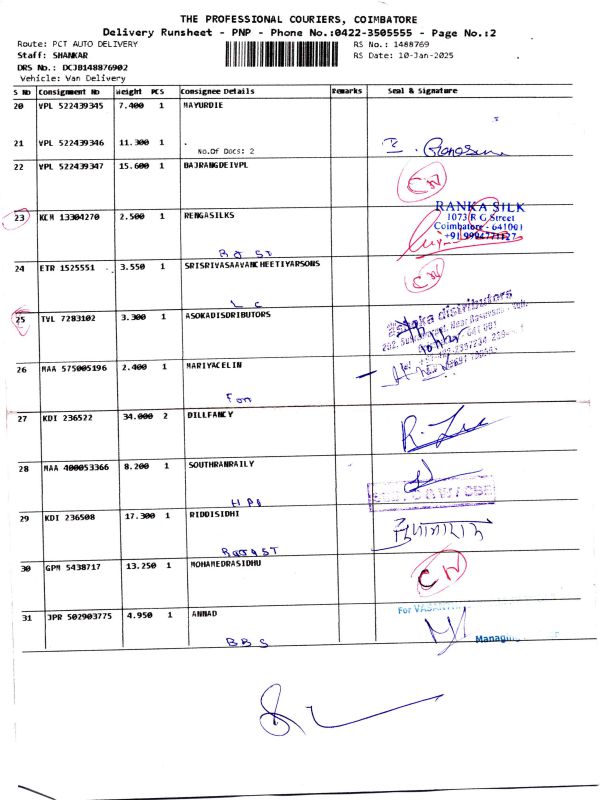 THE PROFESSIONAL COURIERS, COIMBATORE
Delivery Runsheet - PNP - Phone No.:0422-3505555 - Page No.:2
Route: PCT AUTO DELIVERY RS No.: 1488769
Staff: SHANKAR RS Date: 10-Jan-2025
DRS No.: DCJB148876902
Vehicle: Van Delivery
S No Consignment No Weight PCS Consignee Details Remarks Seal & Signature
20 VPL 522439345 7.400 1 MAYURDIE
21 VPL 522439346 11.300 1 .
No.Of Docs: 2
22 VPL 522439347 15.600 1 BAJRANGDEIVPL CN
23 KCM 13304270 2.500 1 RENGASILKS
RANKA SILK
1073 R G Street
Coimbatore - 641001
+91 9994771127
R G ST
24 ETR 1525551 3.550 1 SRISRIVASAAVANCHEETIYARSONS CN
L C
25 TVL 7283102 3.300 1 ASOKADISDRIBUTORS
asoka distributors
26 MAA 575005196 2.400 1 MARIYACELIN
Fon
27 KDI 236522 34.000 2 DILLFANCY
28 MAA 400053366 8.200 1 SOUTHRANRAILY
HPO
29 KDI 236508 17.300 1 RIDDISIDHI
Raja ST
30 GPM 5438717 13.250 1 MOHAMEDRASIDHU CN
31 JPR 502903775 4.950 1 ANNAD
For VASAN
BBS
Managing